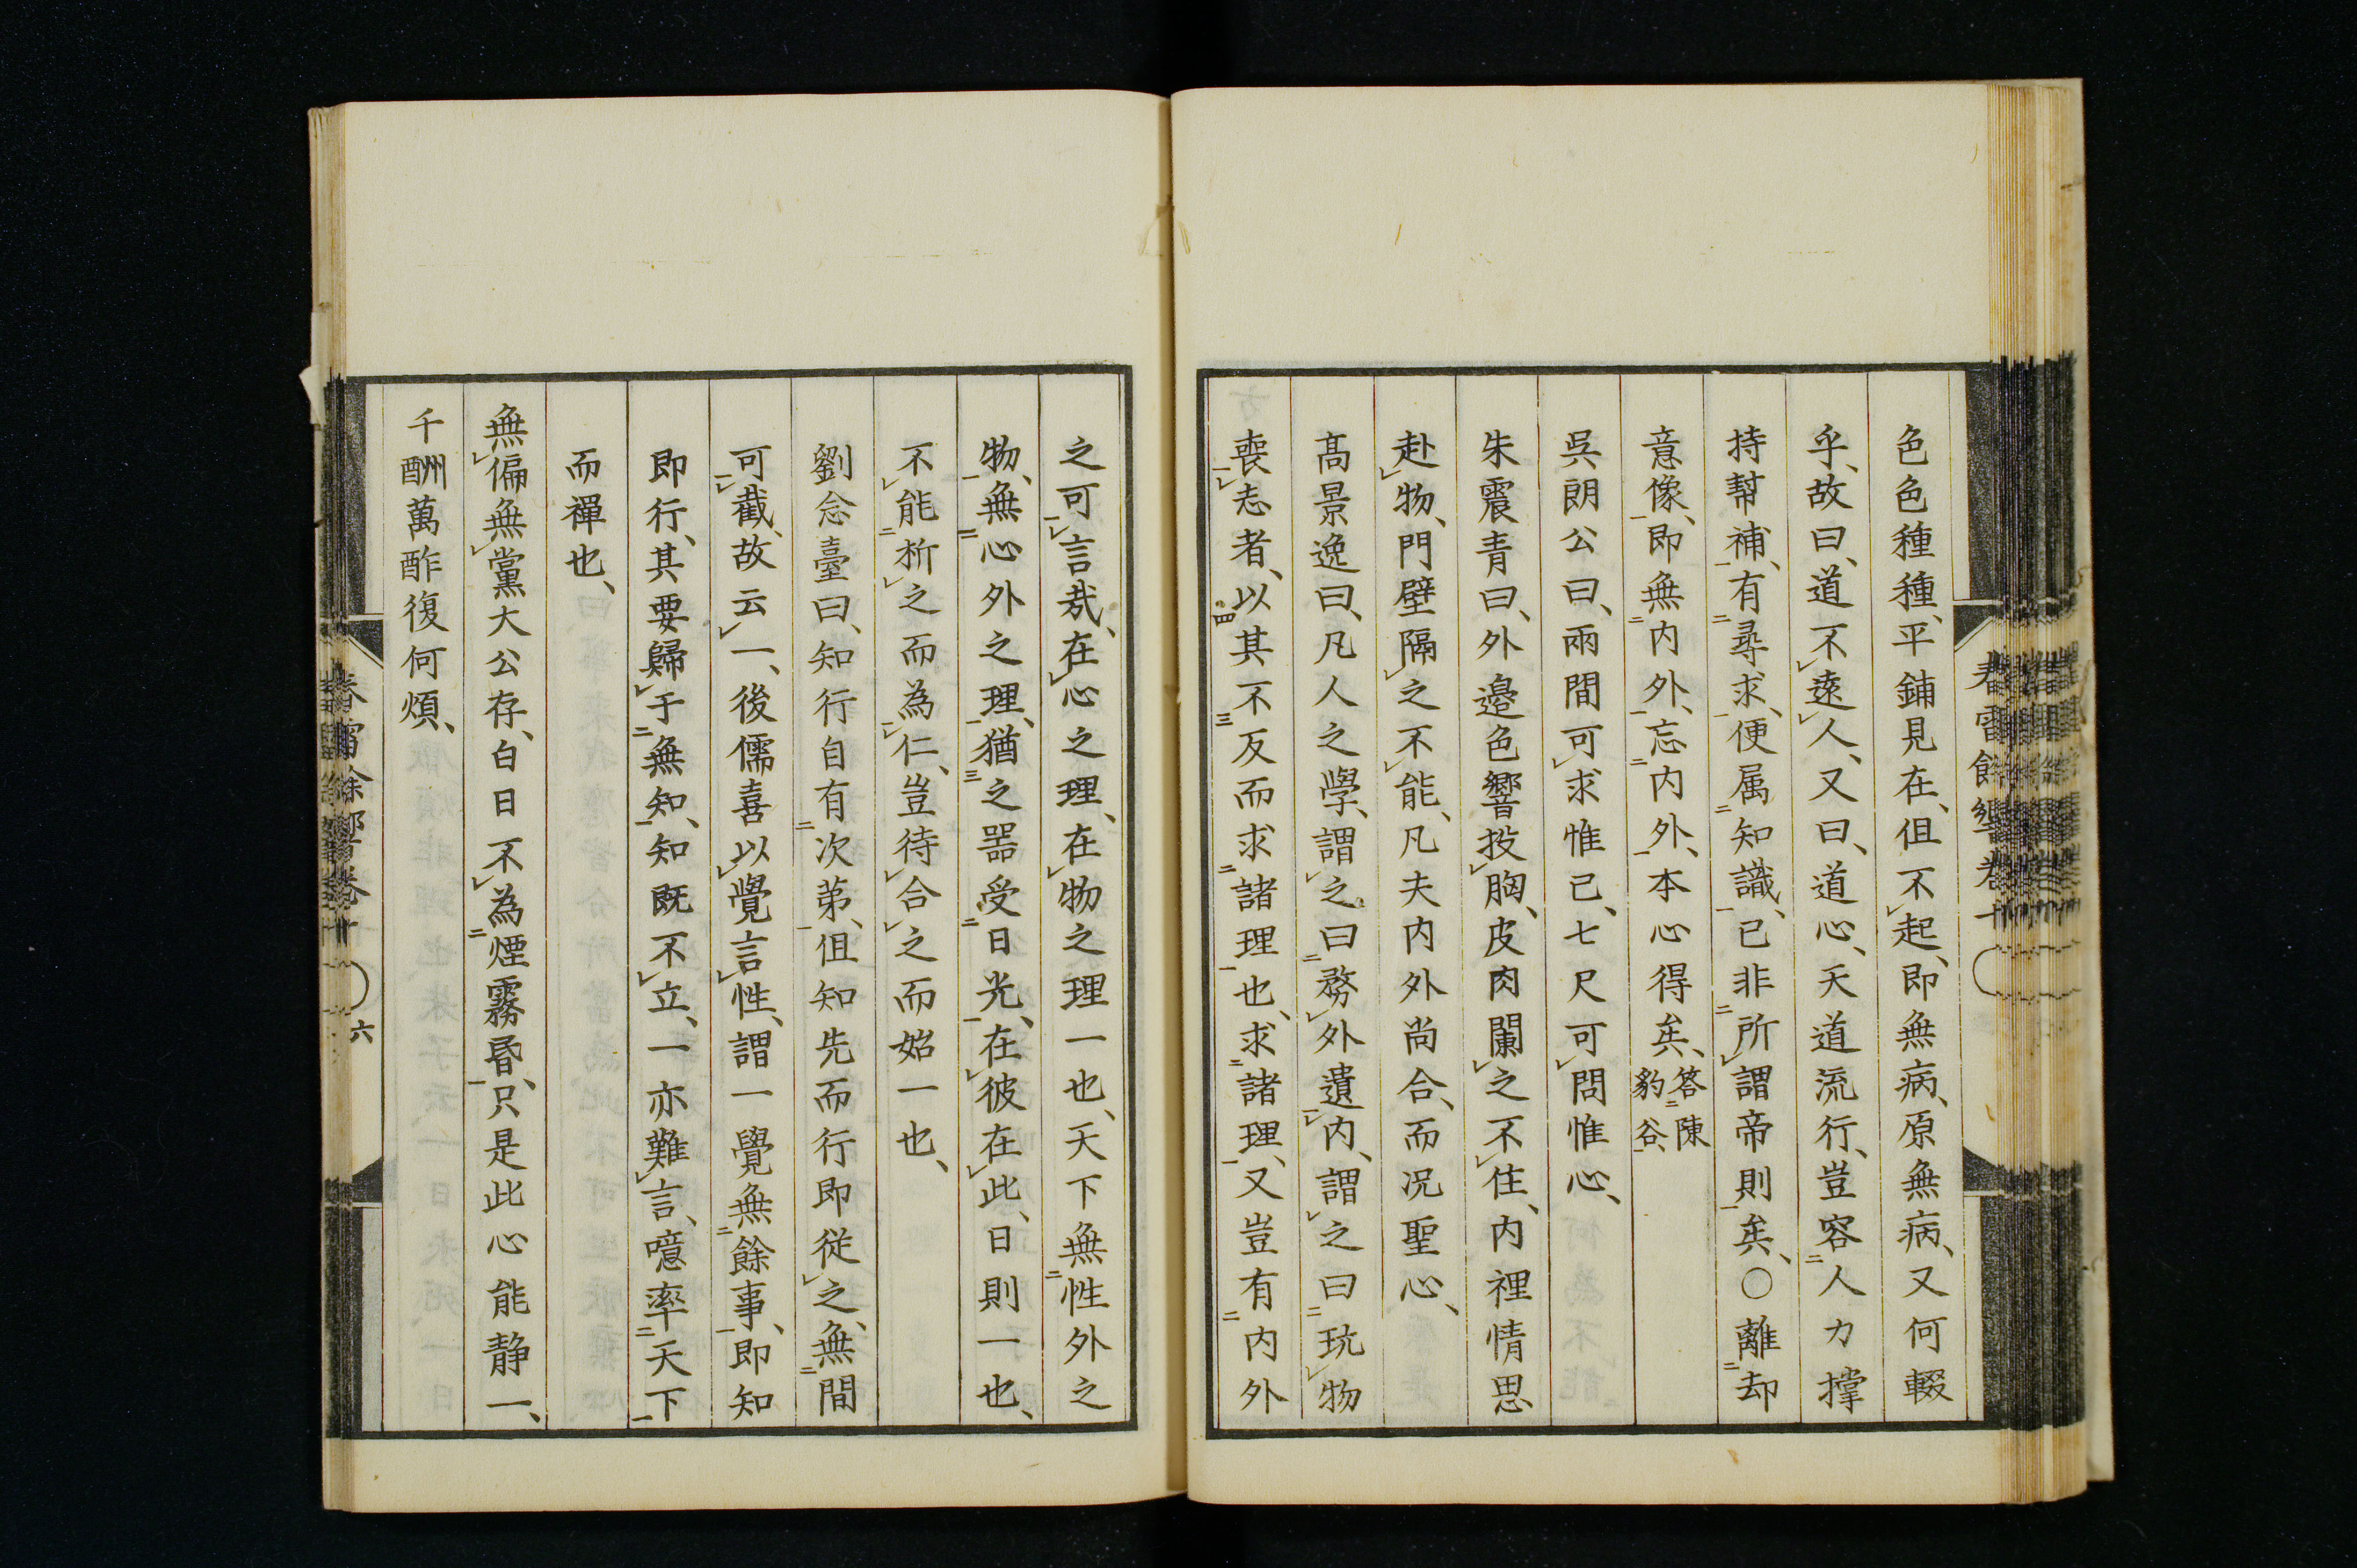 色色種種、平鋪見在、但不起、即無病、原無病、又何輟
乎、故曰、道不遠人、又曰、道心、天道流行、豈容人力撐
持幇補、有尋求、便属知識、已非所謂帝則矣、〇離却
意像、即無内外、忘内外、本心得矣、答陳豹谷、
吳朗公曰、兩間可求惟己、七尺可問惟心、
朱震青曰、外邉色響投胸、皮肉闌之不住、内裡情思
赴物、門壁隔之不能、凡夫内外尚合、而况聖心、
髙景逸曰、凡人之學、謂之曰務外遺内、謂之曰玩物
喪志者、以其不反而求諸理也、求諸理、又豈有内外
之可言哉、在心之理、在物之理一也、天下無性外之
物、無心外之理、猶之器受日光、在彼在此、日則一也、
不能析之而為仁、豈待合之而始一也、
劉念臺曰、知行自有次第、但知先而行即従之、無間
可截、故云一、後儒喜以覺言性、謂一覺無餘事、即知
即行、其要歸于無知、知既不立、一亦難言、噫率天下
而禪也、
無偏無黨大公存、白日不為煙霧昏、只是此心能静一、
千酬萬酢復何煩、
六